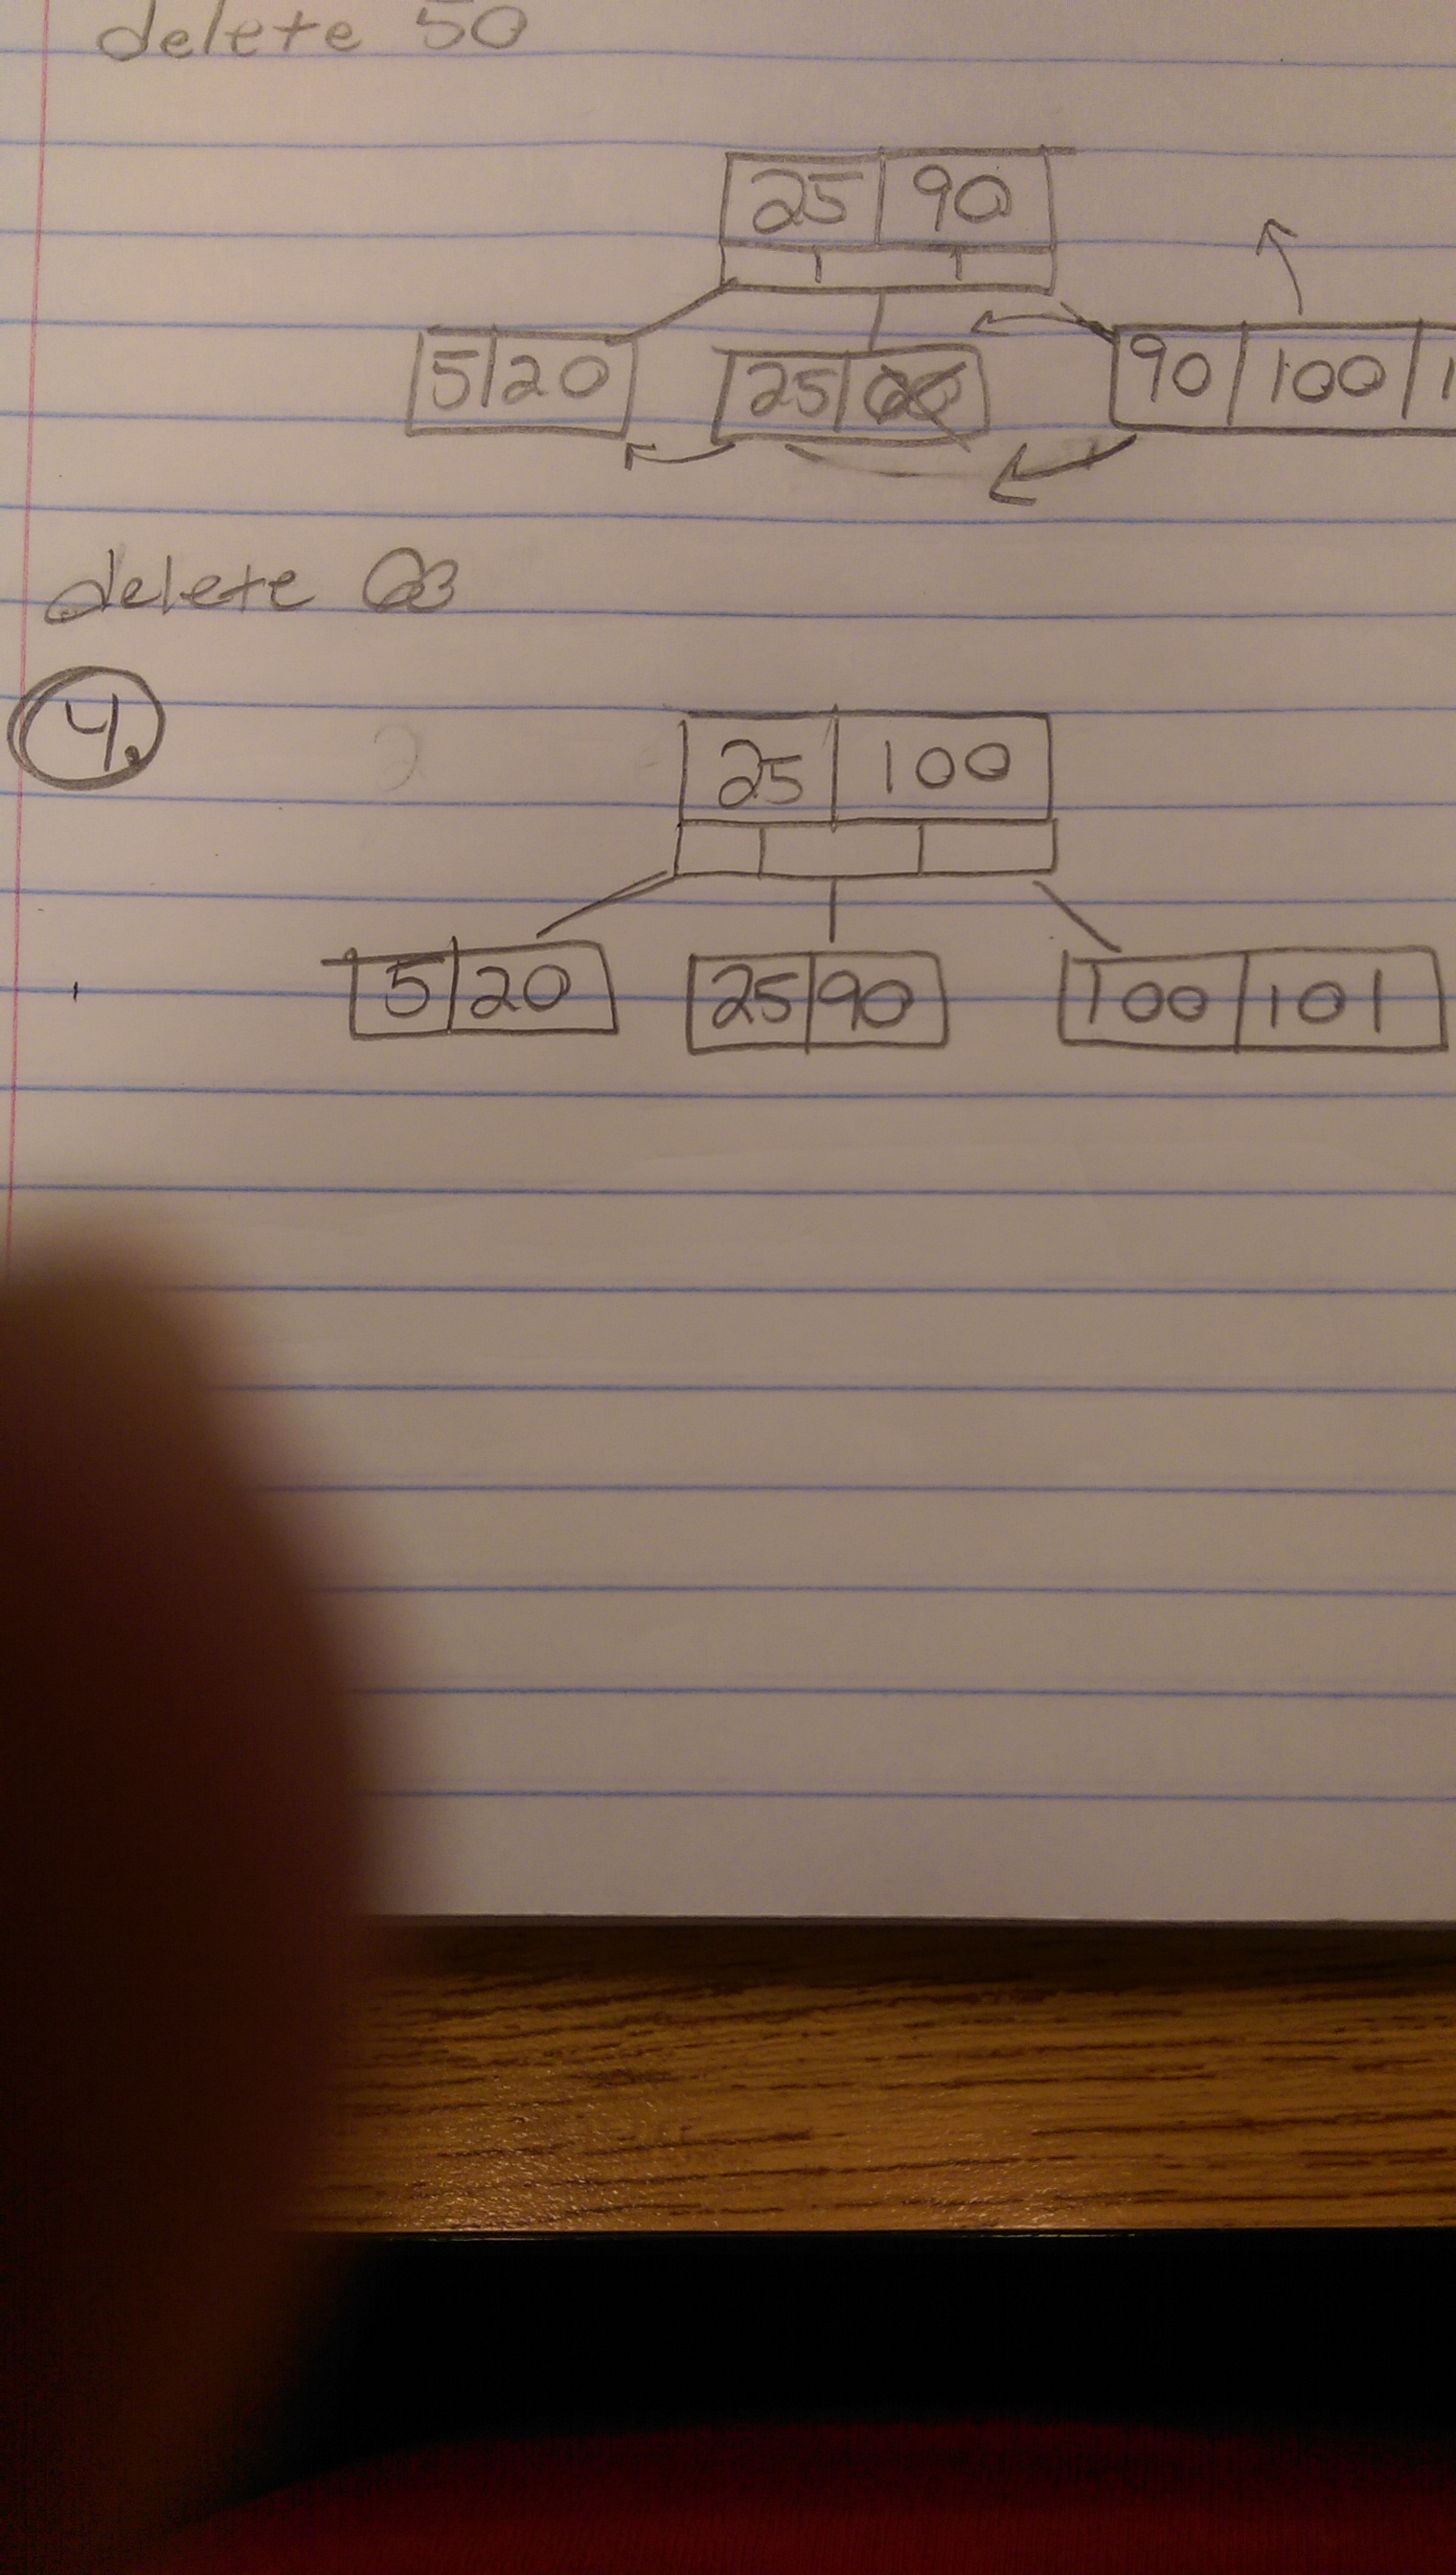 delete 50
25 90
5 20 25 90 100
delete
4.
25 100
5 20 25 90 100 101